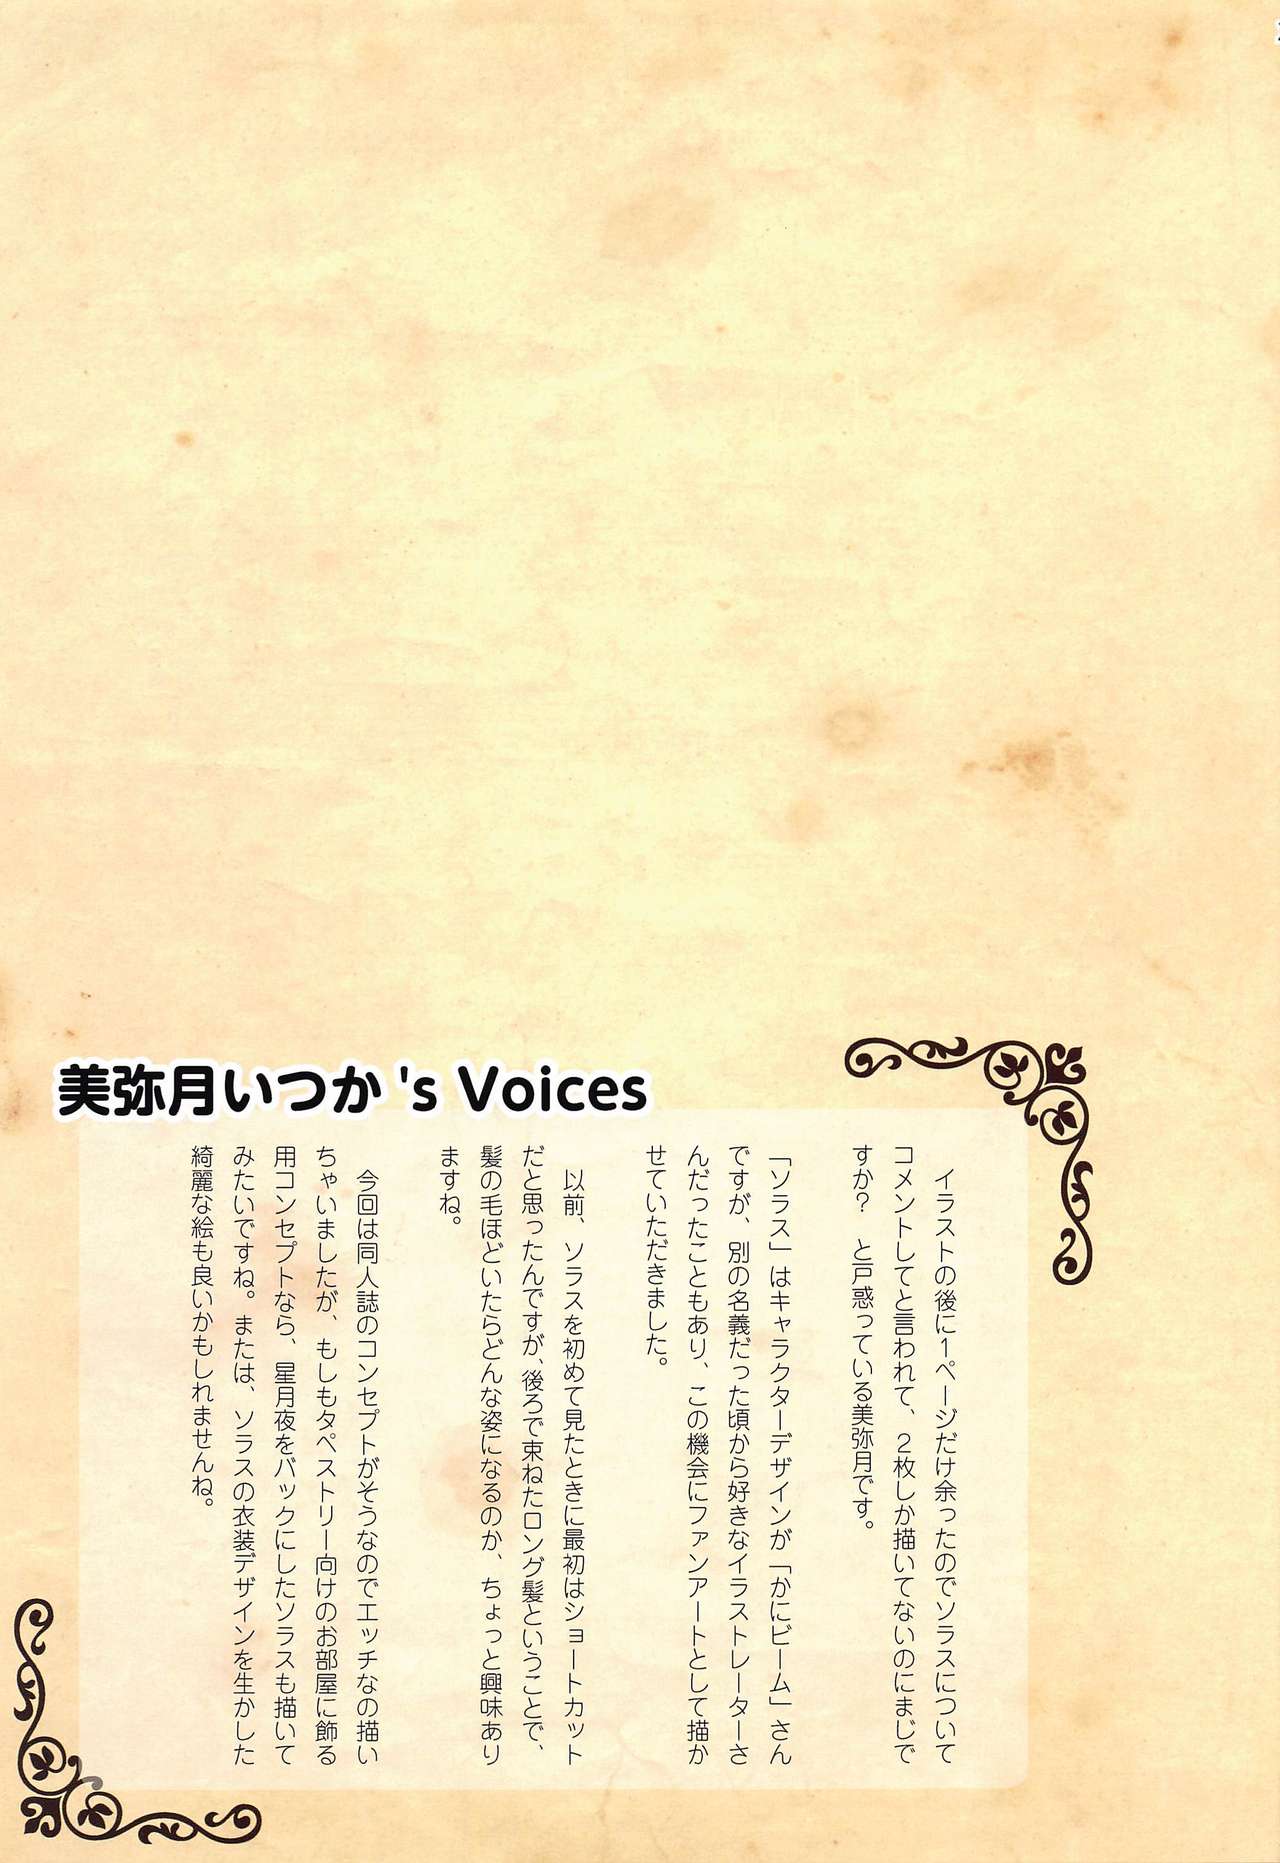 美弥月いつか 's Voices
　イラストの後に１ページだけ余ったのでソラスについて
コメントしてと言われて、２枚しか描いてないのにまじで
すか？　と戸惑っている美弥月です。
「ソラス」はキャラクターデザインが「かにビーム」さん
ですが、別の名義だった頃から好きなイラストレーターさ
んだったこともあり、この機会にファンアートとして描か
せていただきました。
　以前、ソラスを初めて見たときに最初はショートカット
だと思ったんですが、後ろで束ねたロング髪ということで、
髪の毛ほどいたらどんな姿になるのか、ちょっと興味あり
ますね。
　今回は同人誌のコンセプトがそうなのでエッチなの描い
ちゃいましたが、もしもタペストリー向けのお部屋に飾る
用コンセプトなら、星月夜をバックにしたソラスも描いて
みたいですね。または、ソラスの衣装デザインを生かした
綺麗な絵も良いかもしれませんね。